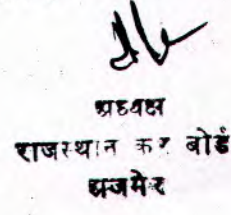 अध्यक्ष
राजस्थान कर बोर्ड
अजमेर